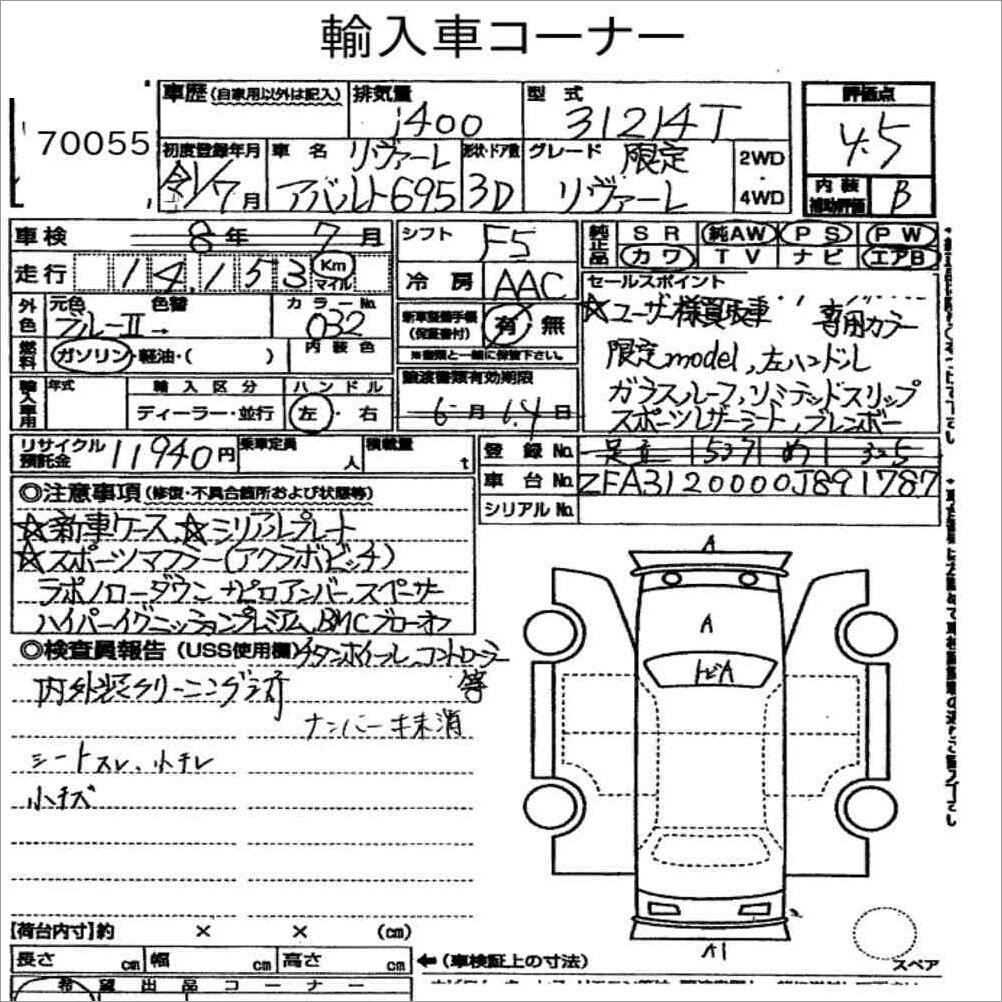 輸入車コーナー
70055
車歴 (自家用以外は記入)
排気量
1400
型式
31214T
評価点
4.5
初度登録年月
令1/7月
車名
リヴァーレ
アバルト695
形状・ドア数
3D
グレード
限定
リヴァーレ
2WD
・
4WD
内装
補助評価
B
車検
8年 7月
走行
14,153
Km
マイル
シフト
F5
冷房
AAC
純正品
SR 純AW PS PW
カワ TV ナビ エアB
外色
元色
ブルーII→
色替
カラーNo.
032
内装色
燃料
ガソリン・軽油・( )
新車整備手帳
(保証書付)
有・無
※書類と一緒に保管下さい。
セールスポイント
☆ユーザー様買取車 専用カラー
限定model,左ハンドル
ガラスルーフ,リミテッドスリップ
スポーツレザーシート,ブレンボー
輸入車用
年式
輸入区分
ディーラー・並行
ハンドル
左・右
譲渡書類有効期限
6月14日
リサイクル
預託金
11940円
乗車定員
人
積載量
t
登録No.
足立 537 め 325
車台No.
ZFA3120000J891787
シリアルNo.
◎注意事項 (修復・不具合箇所および状態等)
☆新車ケース,☆シリアルプレート
☆スポーツマフラー(アクラポビッチ)
ラポノローダウン ナピロアンバースペーサー
ハイパーイグニッションプレミアム,BMCブローオフ
◎検査員報告 (USS使用欄)
チタンホイール,コントローラー
等
内外装クリーニング済
ナンバーキ未消
シートスレ、小キレ
小キズ
A
A
トビA
A1
スペア
【荷台内寸】約 × × (cm)
長さ cm 幅 cm 高さ cm
←(車検証上の寸法)
希望出品コーナー